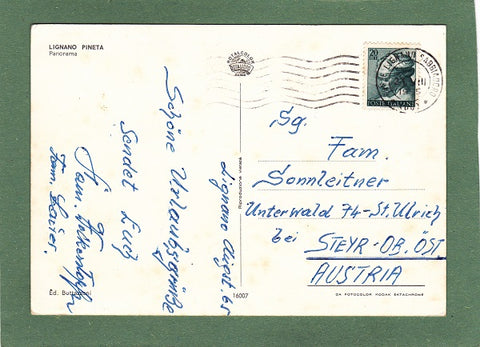 LIGNANO PINETA
Panorama
Lignano August. 65
Schöne Urlaubsgrüße
Sendet Euch
Fam.
Fam.
Ed. Buttazzoni
16007
Riproduzione vietata
20
POSTE ITALIANE
Sg.
Fam.
Sonnleitner
Unterwald 74-St. Ulrich
bei STEYR-OB. ÖST
AUSTRIA
DA FOTOCOLOR KODAK EKTACHROME